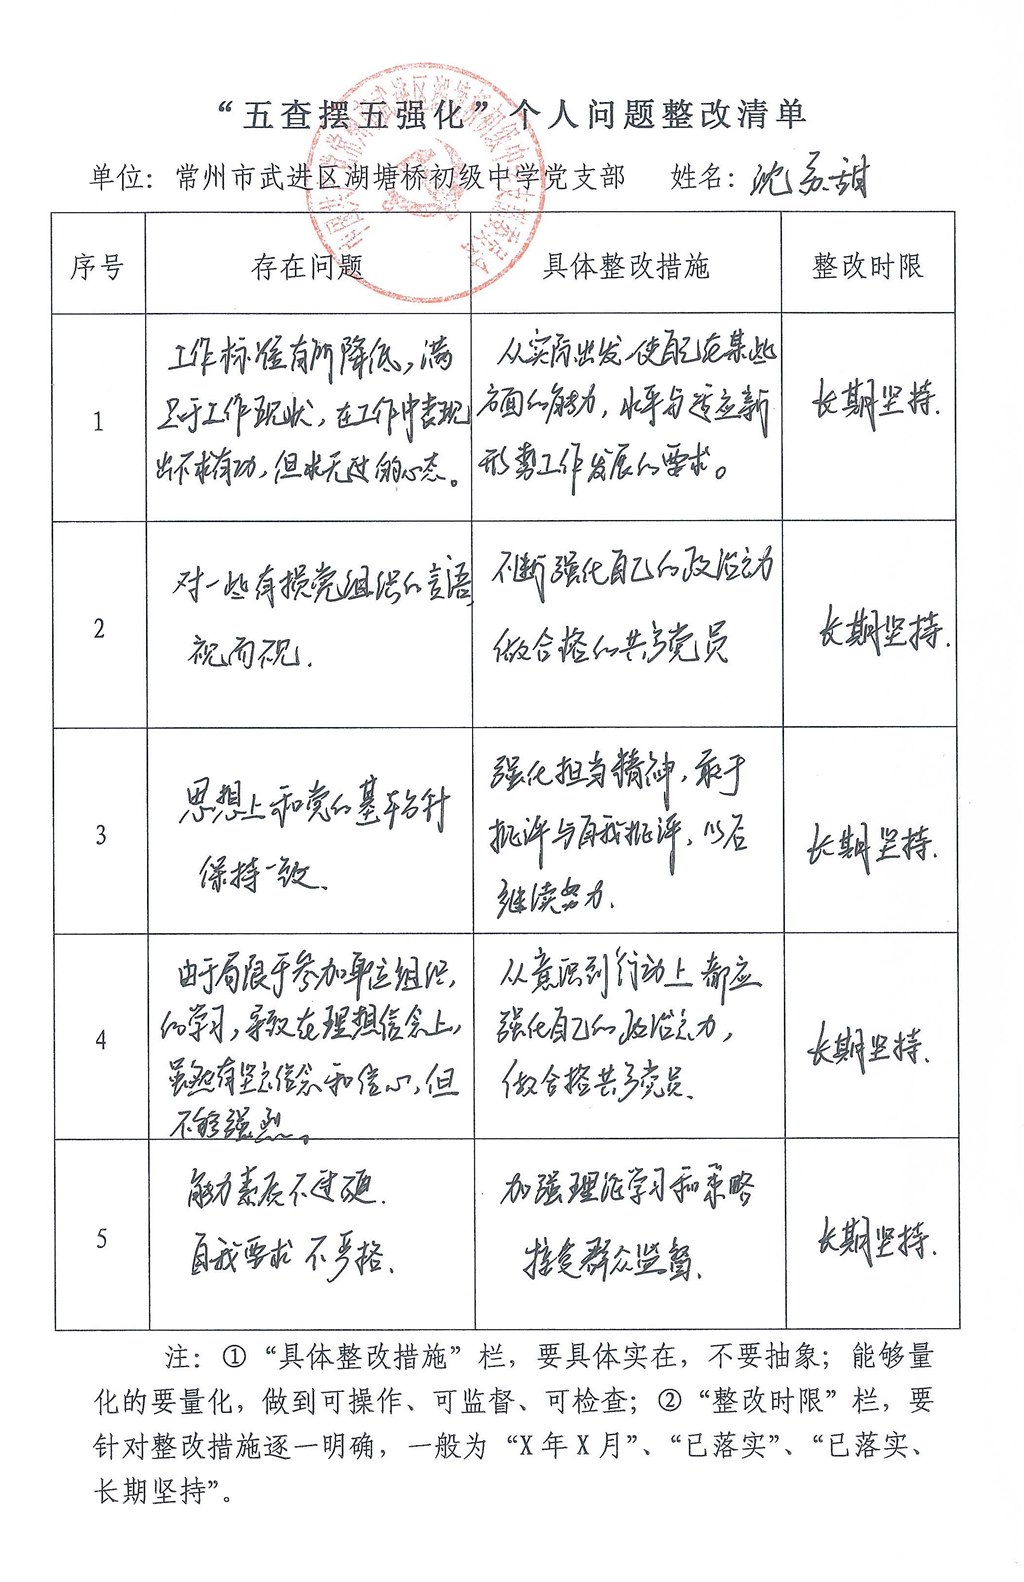 “五查摆五强化”个人问题整改清单
单位：常州市武进区湖塘桥初级中学党支部 姓名：沈苏甜
序号 存在问题 具体整改措施 整改时限
1
工作标准有所降低，满
足于工作现状，在工作中表现
出不求有功，但求无过的心态。
从实际出发，使自己在某些
方面的能力，水平与适应新
形势工作发展的要求。
长期坚持.
2
对一些有损党组织的言语，
视而视.
不断强化自己的政治定力
做合格的共产党员
长期坚持.
3
思想上和党的基本方针
保持一致.
强化担当精神，敢于
批评与自我批评，以后
继续努力.
长期坚持.
4
由于局限于参加单位组织，
的学习，导致在理想信念上，
虽然有坚定信念和信心，但
不够强烈。
从意识到行动上都应
强化自己的政治定力，
做合格共产党员.
长期坚持.
5
能力素质不过硬.
自我要求不严格.
加强理论学习和策略
接受群众监督.
长期坚持.
注：①“具体整改措施”栏，要具体实在，不要抽象；能够量
化的要量化，做到可操作、可监督、可检查；②“整改时限”栏，要
针对整改措施逐一明确，一般为“X年X月”、“已落实”、“已落实、
长期坚持”。